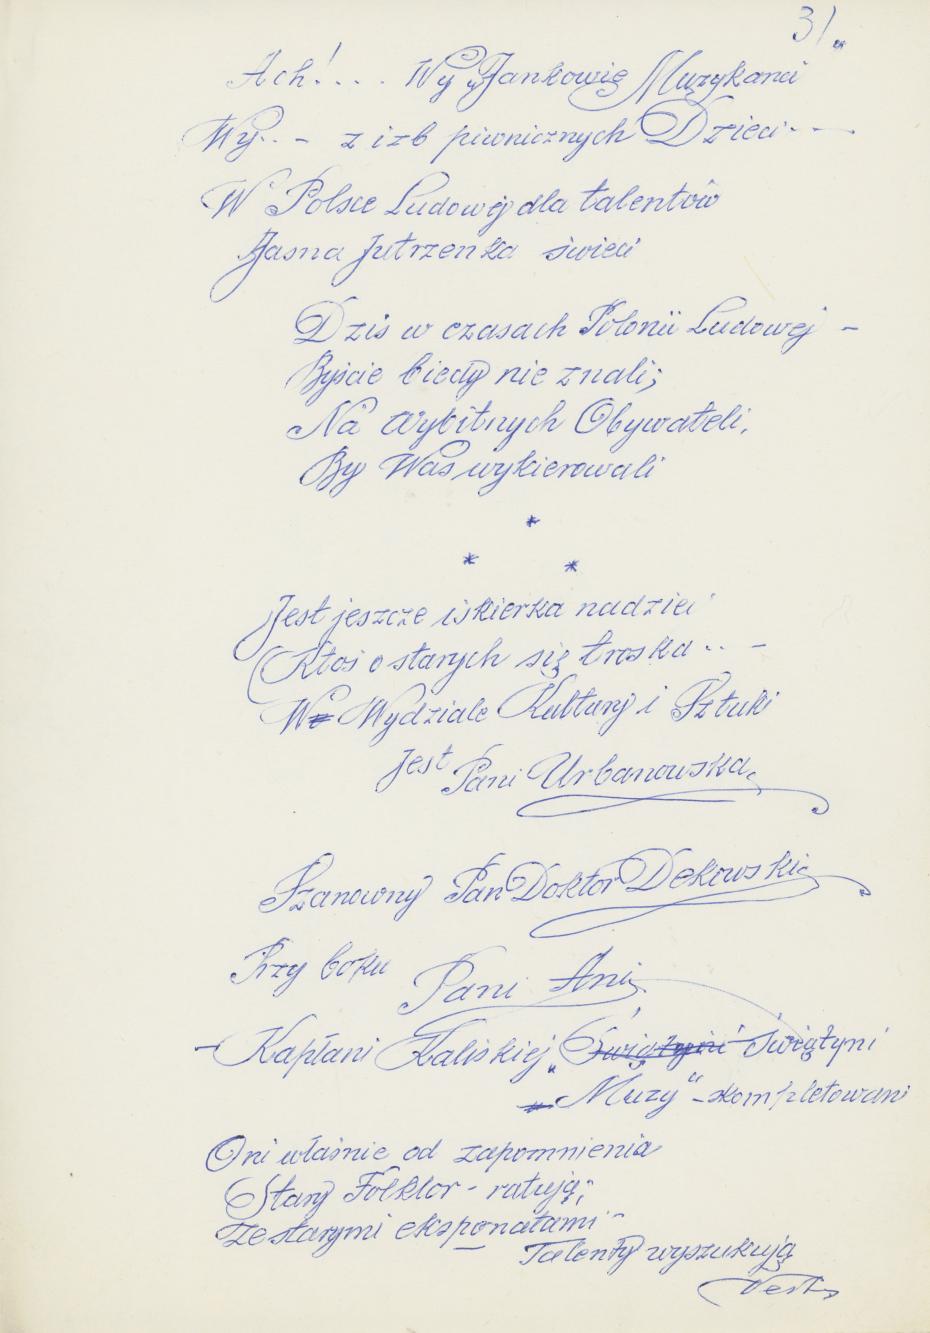 31.
Ach!.... Wy "Jankowie Muzykanci
Wy.. - z izb piwnicznych Dzieci.. -
W Polsce Ludowej dla talentów
Jasna Jutrzenka świeci
Dziś w czasach Polonii Ludowej -
Byście biedy nie znali;
Na Wybitnych Obywateli,
By Was wykierowali
*
* *
Jest jeszcze iskierka nadziei
Ktoś o starych się troska.. -
W Wydziale Kultury i Sztuki
Jest Pani Urbanowska,
Szanowny Pan Doktor Dekowski
Przy boku Pani Ani
- Kapłani Kaliskiej „Świątyni Świątyni
Muzy" - skompletowani
Oni właśnie od zapomnienia
Stary Folklor - ratują;
Ze starymi eksponatami -
Talenty wyszukują